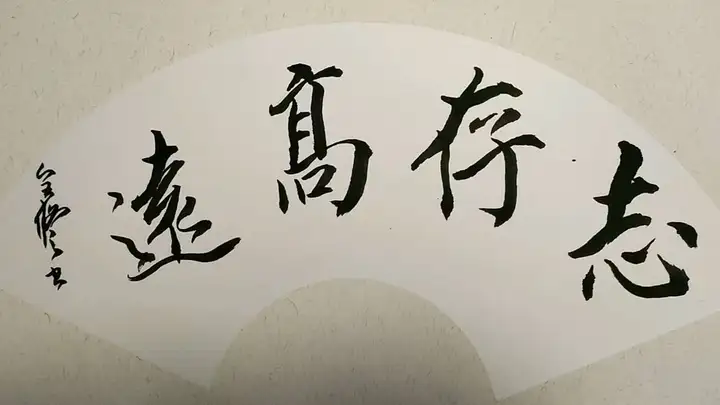 志存高遠
書